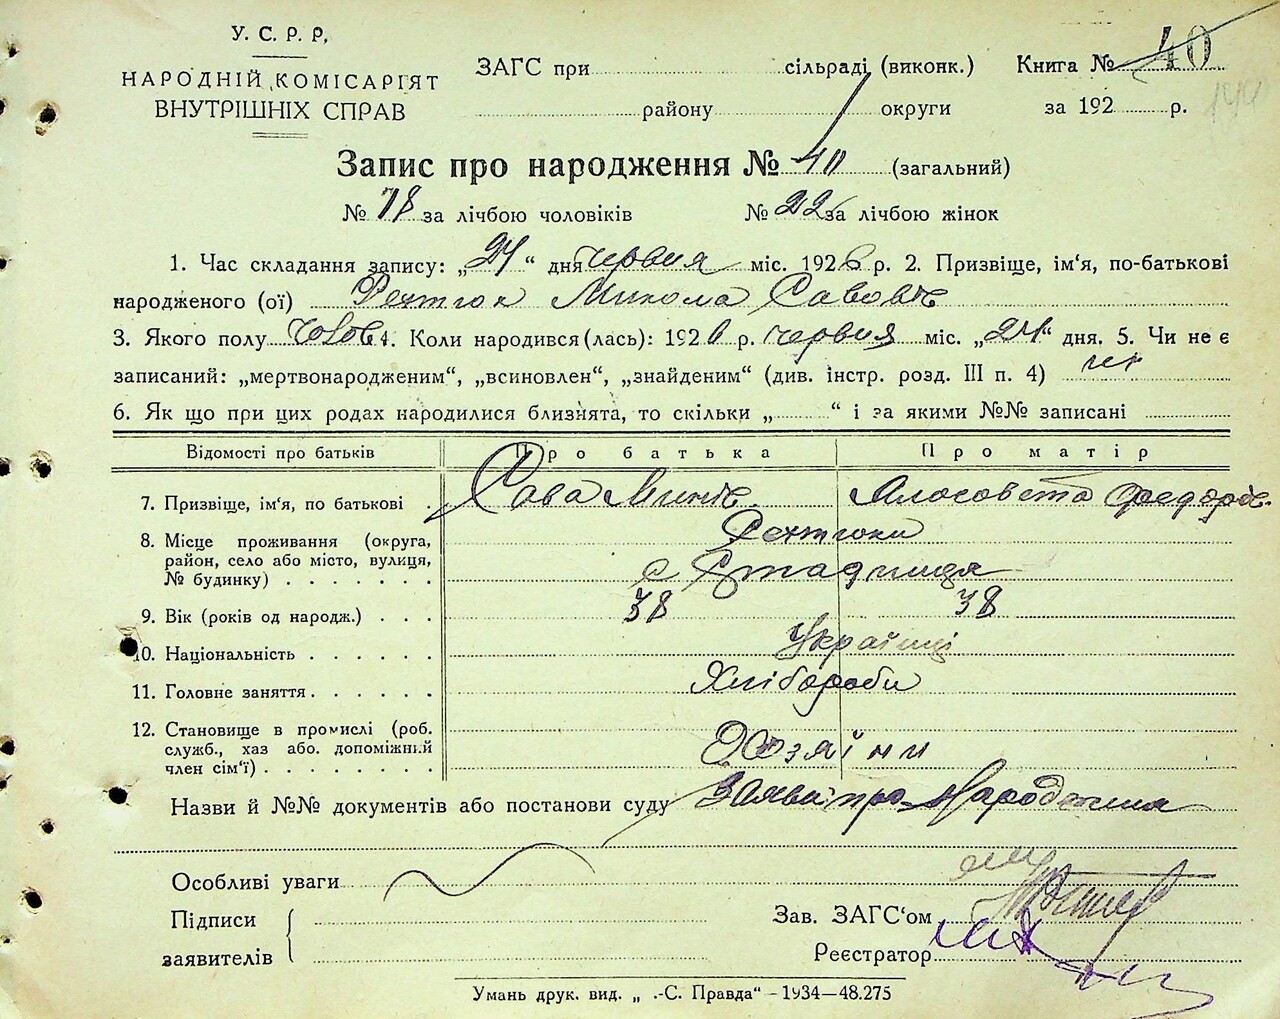 У. С. Р. Р.
НАРОДНІЙ КОМІСАРІЯТ
ВНУТРІШНІХ СПРАВ
ЗАГС при сільраді (виконк.) Книга № 40
району округи за 192 р.
Запис про народження № 40 (загальний)
№ 18 за лічбою чоловіків № 22 за лічбою жінок
1. Час складання запису: „24“ дня червня міс. 1926 р. 2. Призвіще, ім'я, по-батькові
народженого (ої) Микола Савович
3. Якого полу 4. Коли народився (лась): 1926 р. червня міс. „24“ дня. 5. Чи не є
записаний: „мертвонародженим“, „всиновлен“, „знайденим“ (див. інстр. розд. III п. 4) ні
6. Як що при цих родах народилися близнята, то скільки „ “ і за якими №№ записані
Відомості про батьків Про батька Про матір
7. Призвіще, ім'я, по батькові Сава
8. Місце проживання (округа,
район, село або місто, вулиця,
№ будинку) с Стадниця
9. Вік (років од народж.) 38 38
10. Національність Українці
11. Головне заняття Хлібороби
12. Становище в промислі (роб.
служб., хаз або. допоміжний
член сім'ї) Хозяїни
Назви й №№ документів або постанови суду Заява про народження
Особливі уваги
Підписи
заявителів
Зав. ЗАГС'ом
Реєстратор
Умань друк. вид. „ .-С. Правда“ – 1934—48.275